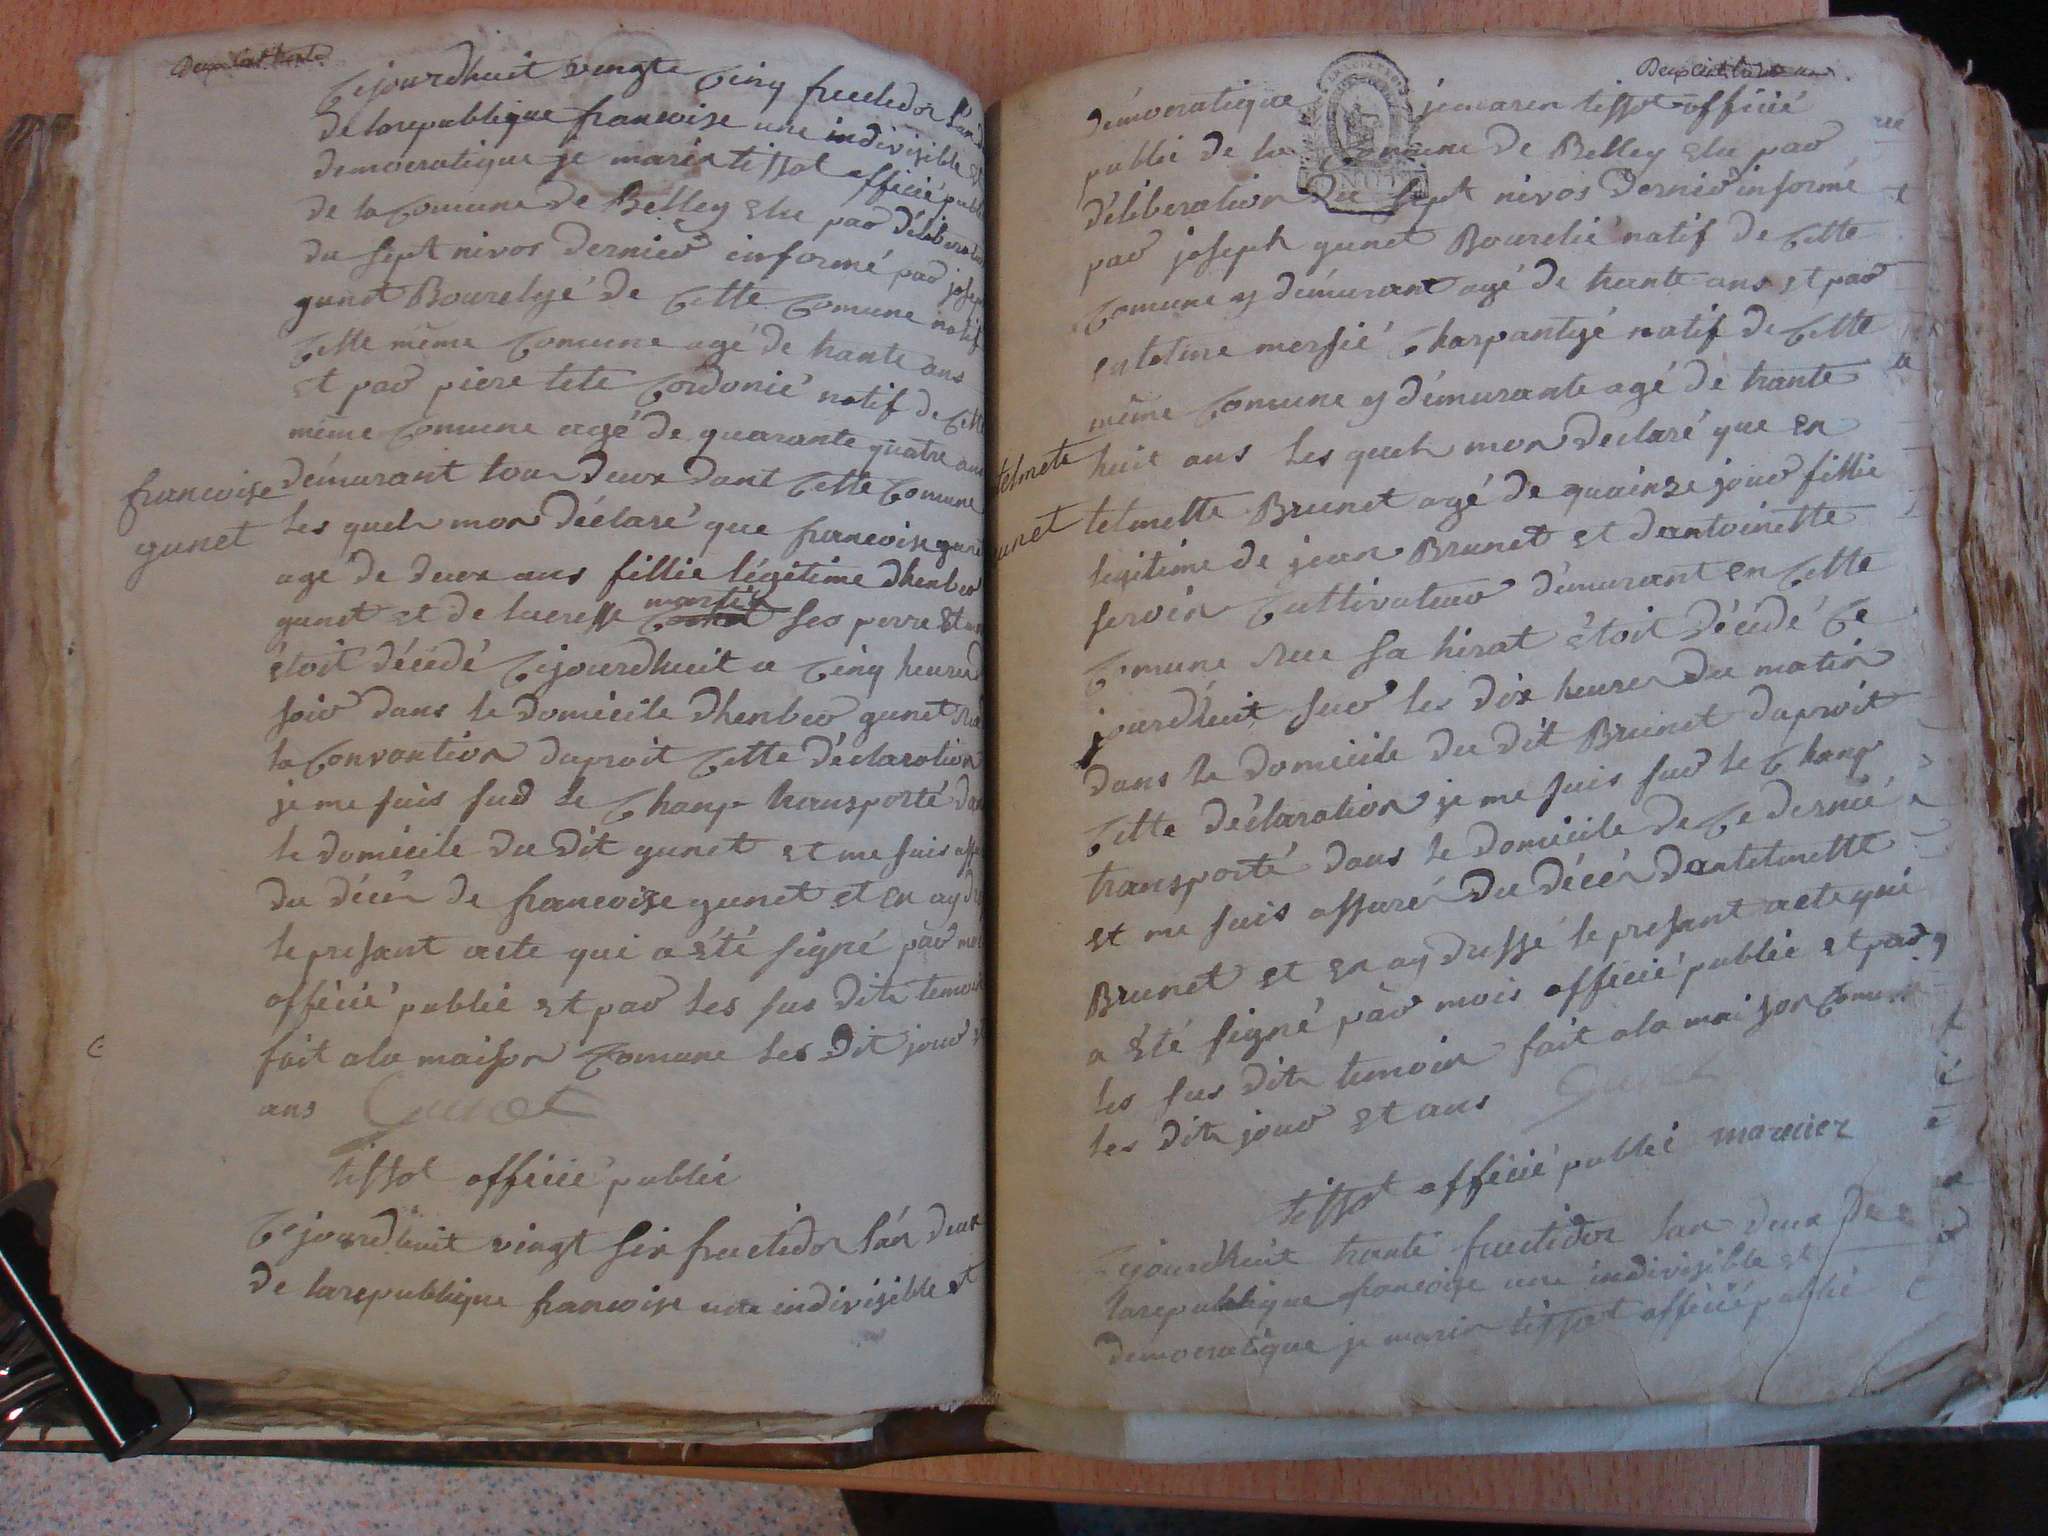 Deux Cent trente
Cejourdhuit vingte Cinq fructidor l'an d
de larepublique francoise une indivisible et
democratique je marin tissot officié publi
de la Comune de Belley elu par déliberation
du sept nivos dernier informé par joseph
gunet Bourelyé de Cette Comune natif
Cette même Comune agé de trante ans
et par piere tete Cordonié natif de Cette
même Comune agé de quarante quatre ans
démurant tou deux dant Cette Comune
francoise
gunet
les quels mon déclaré que francoise gunet
age de deux ans fillie légitime dhenber
gunet et de lucresse martin ses perre et
étoit décédé Cejourdhuit a Cinq heures d
soir dans le domicile dhenber gunet rue
la Convantion daproit Cette déclaration
je me suis sur le Champ transporté dans
le domicile du dit gunet et me suis assu
du décés de francoise gunet et en ay
le presant acte qui a été signé par moi
officié public et par les sus dits temoins
fait a la maison Comune les dit jour et
ans Gunet
tissot officié public
Ce jourdhuit vingt six fructidor l'an deux
de larepublique francoise une indivisible et
Deux Cent trante un
démocratique je marin tissot officié
public de la Comune de Belley elu par
déliberation du sept nivos dernier informé
par joseph gunet Bourelié natif de Cette
Comune y démurant agé de trante ans et par
entelme mersié Charpantyé natif de Cette
même Comune y démurante agé de trante
huit ans les quels mon declaré que en
telmete
unet
telmette Brunet agé de quainse jour fillie
legitime de jean Brunet et dantoinette
servin Cultivateur démurant en Cette
Comune rue sa hirat étoit décédé Ce
jourdhuit sur les dix heures du matin
dans le domicile du dit Brunet daproit
Cette déclaration je me suis sur le Champ
transporté dans le domicile de Ce dernié
et me suis assuré du décés dantelmette
Brunet et en ay dussé le presant acte qui
a été signé par mois officié public et par
les sus dits temoins fait a la maison Comune
les dits jour et ans Gunet
tissot officié public mercier
Cejourdhuit trante fructidor lan deux de
larepublique francoise une indivisible et
democratique je marin tissot officié public